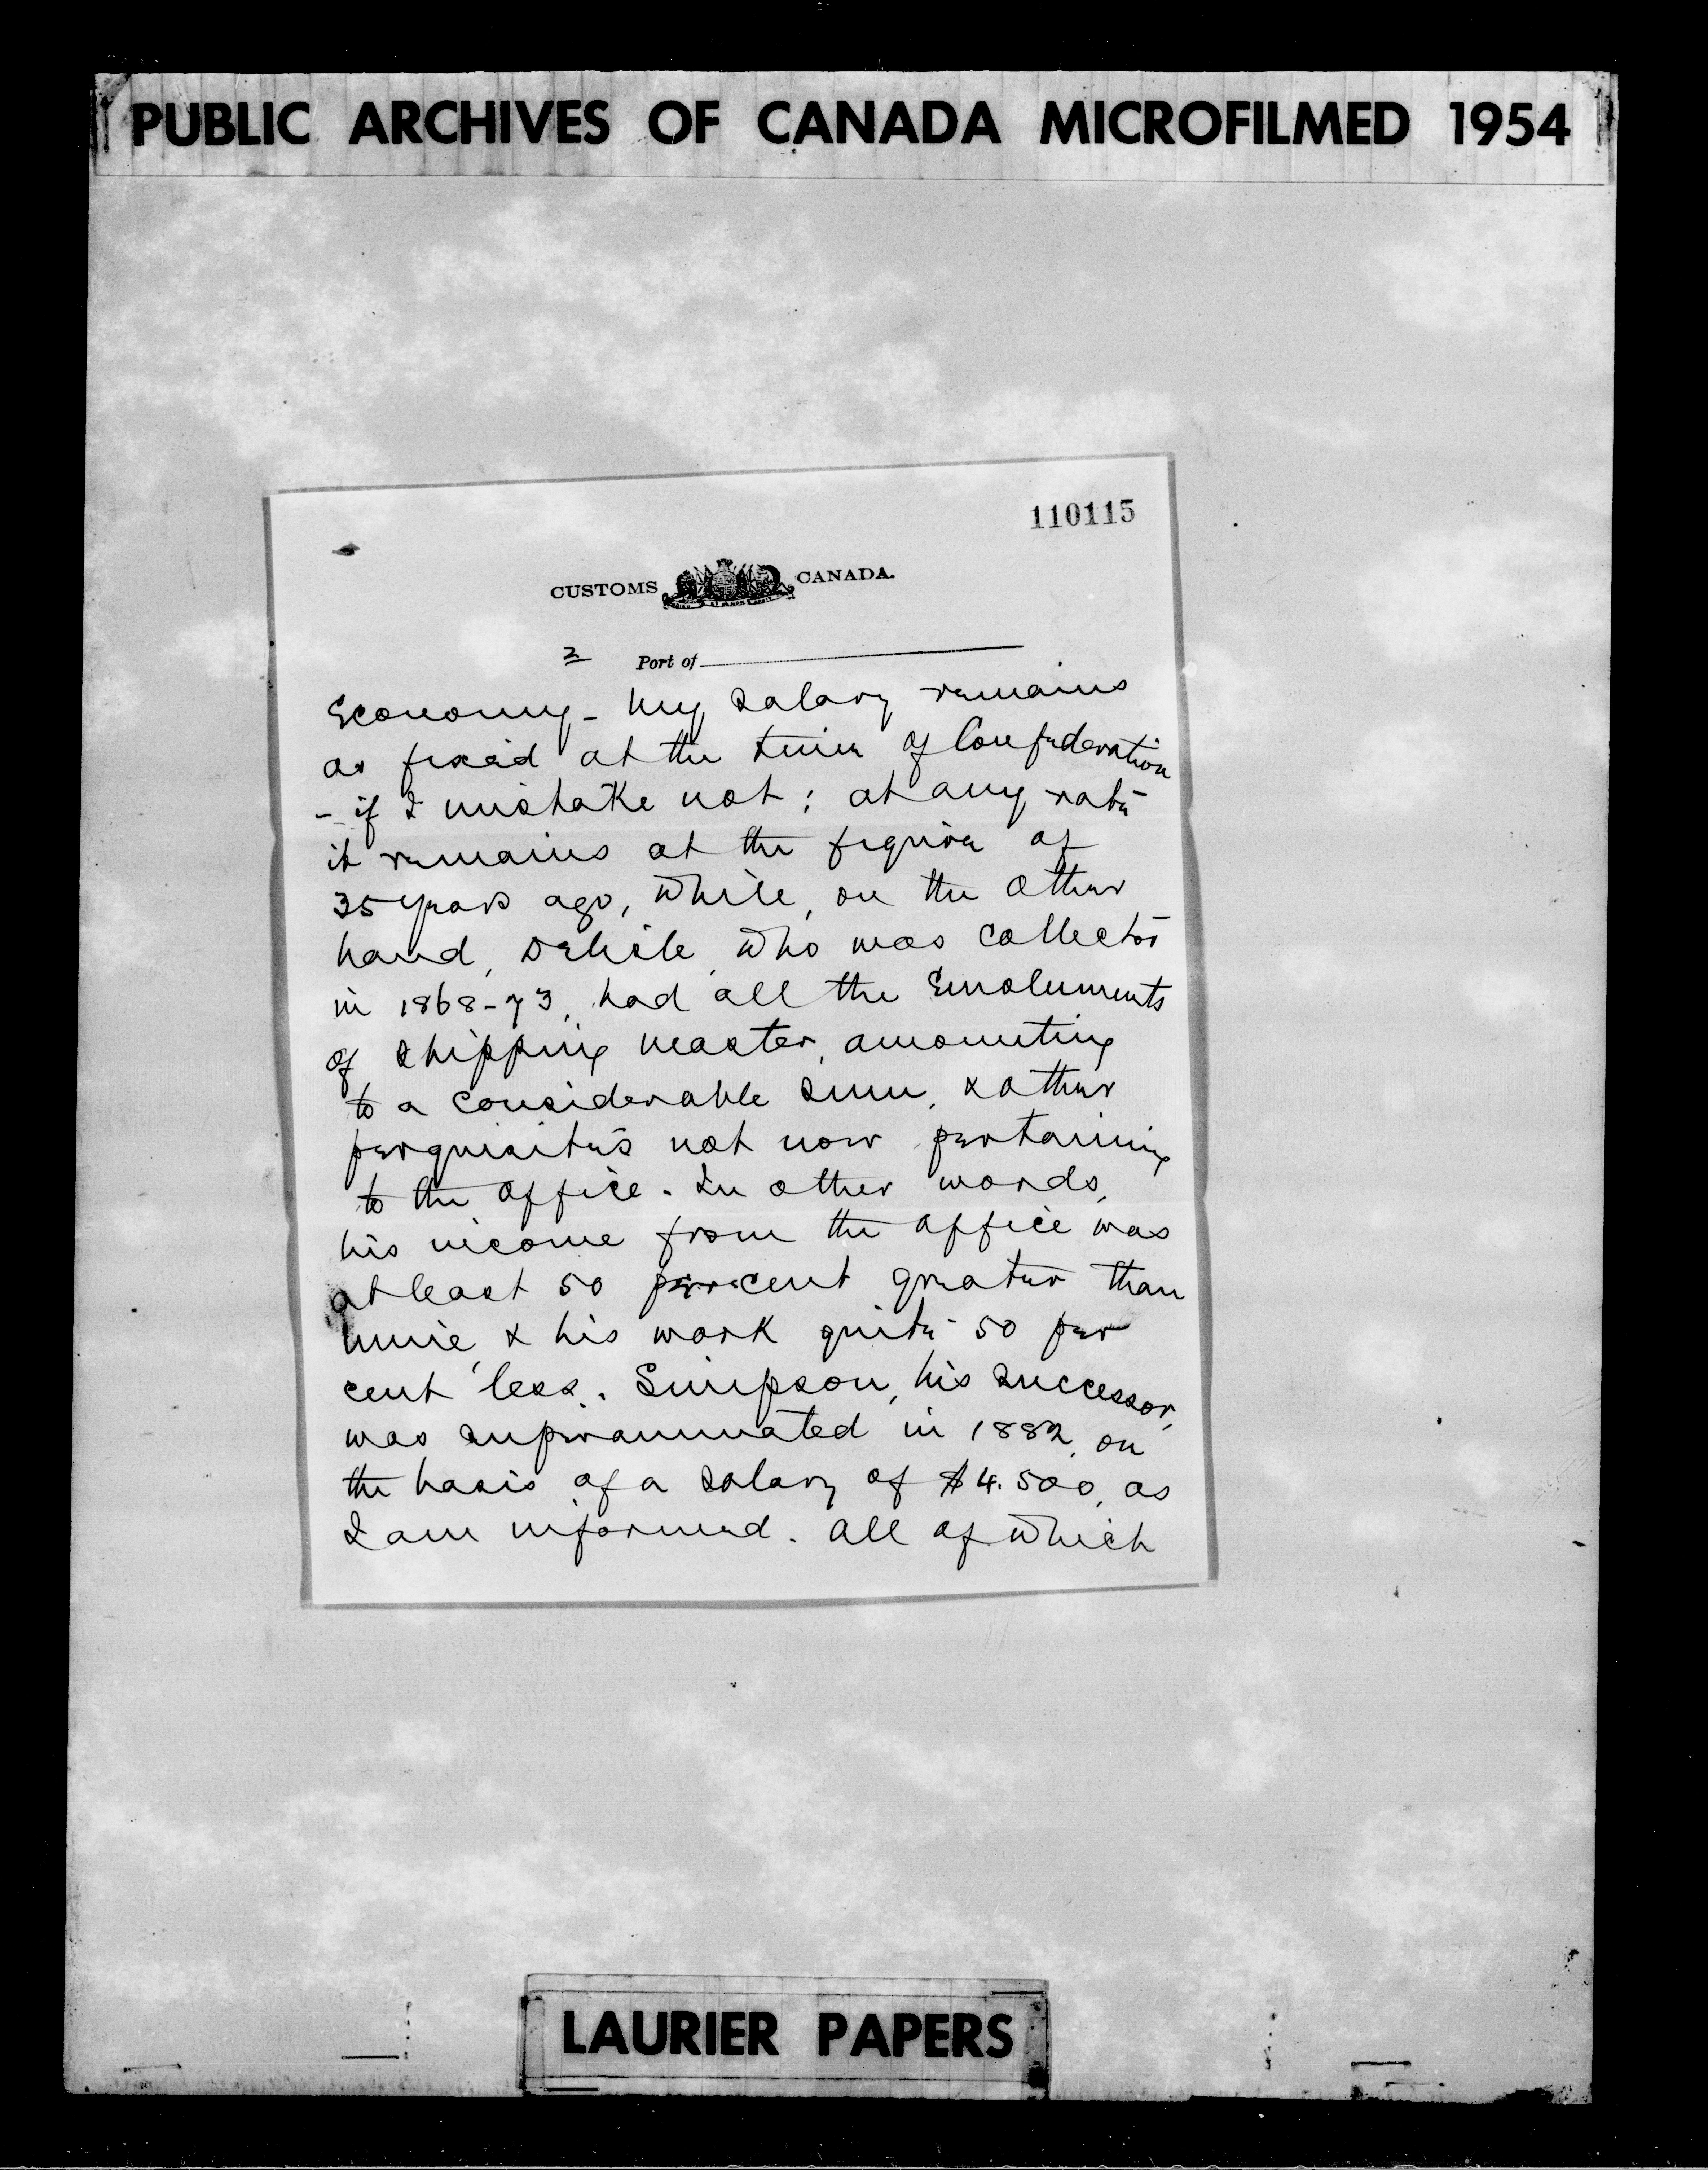 PUBLIC ARCHIVES OF CANADA MICROFILMED 1954
110115
CUSTOMS CANADA.
2 Port of
Economy - My salary remains
as fixed at the time of Confederation
- if I mistake not ; at any rate
it remains at the figure of
35 years ago, while, on the other
hand, Delisle, who was collector
in 1868-73, had all the Emoluments
of shipping master, amounting
to a considerable sum, & other
perquisites not now pertaining
to the office. In other words,
his income from the office was
at least 50 per cent greater than
mine & his work quite 50 per
cent less. Simpson, his successor,
was superannuated in 1882, on
the basis of a salary of $4.500, as
I am informed. All of which
LAURIER PAPERS